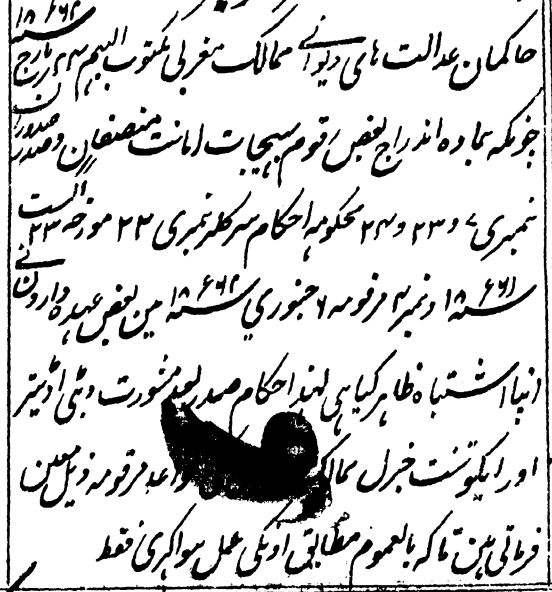 سنہ ۱۸۶۲ء
حاکمان عدالت ہای دیوانی ممالک مغربی مکتوب الیہم ۲۴ مارچ
چونکہ بمادہ اندراج بعض رقوم سیہجات امانت منصفان و صدر صدوران
نمبری ۷ و ۲۳ و ۲۴ محکومہ احکام سرکلر نمبری ۲۲ مورخہ ۲۳ اگست
سنہ ۱۸۶۱ء و نمبر ۴ مرقومہ ۶ جنوری سنہ ۱۸۶۲ء مین بعض عہدہ دارون نی
اپنا اشتباہ ظاہر کیا ہی لہذا احکام صدر بعد مشورت دپٹی اڈیٹر
اور اکونٹنٹ جنرل ممالک قواعد مرقومہ ذیل معین
فرماتی ہین تاکہ بالعموم مطابق اونکی عمل ہوا کری فقط